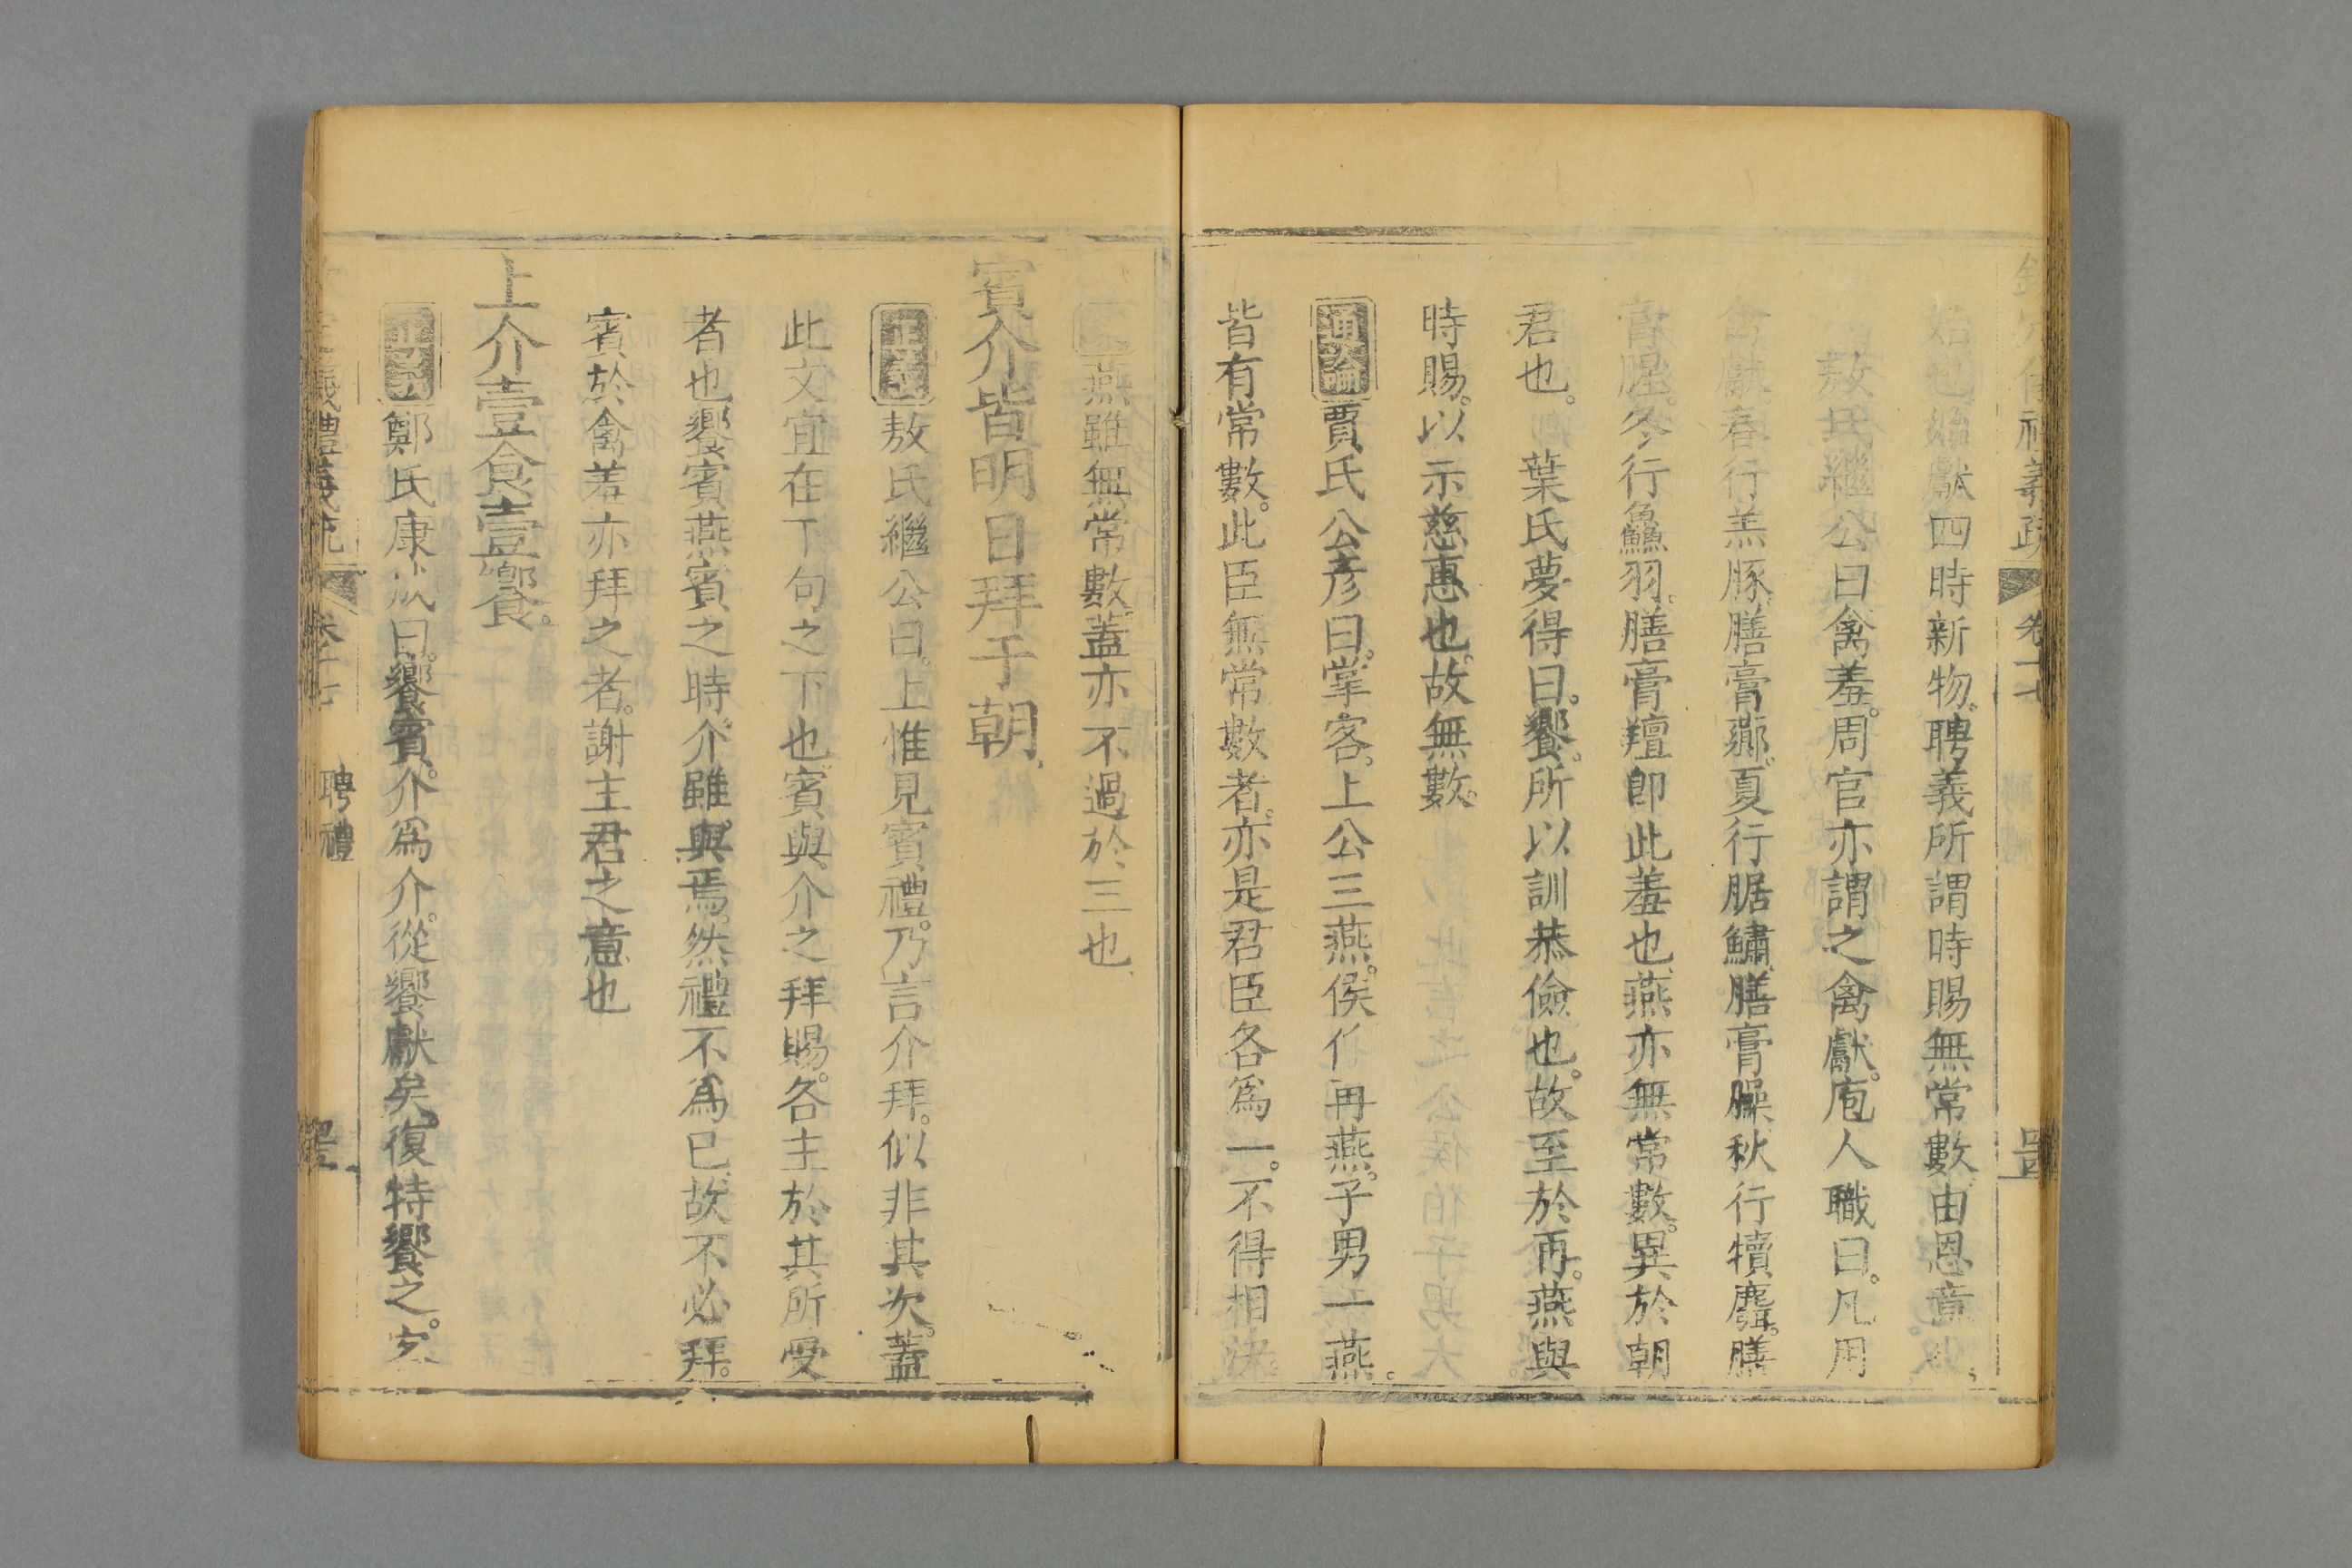 義疏 卷十七
始也俶獻四時新物聘義所謂時賜無常數由恩意
敖氏繼公曰禽羞周官亦謂之禽獻。庖人職曰。凡用
禽獻春行羔豚。膳膏薌。夏行腒鱐。膳膏臊。秋行犢麛。膳
膏腥。冬行鱻羽。膳膏羶卽此羞也。燕亦無常數。異於朝
君也。 葉氏夢得曰。饗。所以訓恭儉也。故至於再。燕與
時賜。以示慈惠也。故無數。
通論 賈氏公彥曰。掌客。上公三燕。侯伯再燕。子男一燕。
皆有常數。此臣無常數者。亦是君臣各爲一。不得相決。
燕雖無常數。蓋亦不過於三也
賓介皆明日拜于朝。
正義 敖氏繼公曰。上惟見賓禮。乃言介拜。似非其次。蓋
此文宜在下句之下也。賓與介之拜賜。各主於其所受
者也饗賓燕賓之時。介雖與焉。然禮不爲已。故不必拜。
賓於禽羞亦拜之者。謝主君之意也
上介壹食壹饗。
正義 鄭氏康成曰。饗賓。介爲介。從饗獻矣。復特饗之。客
儀禮義疏 卷十七 聘禮